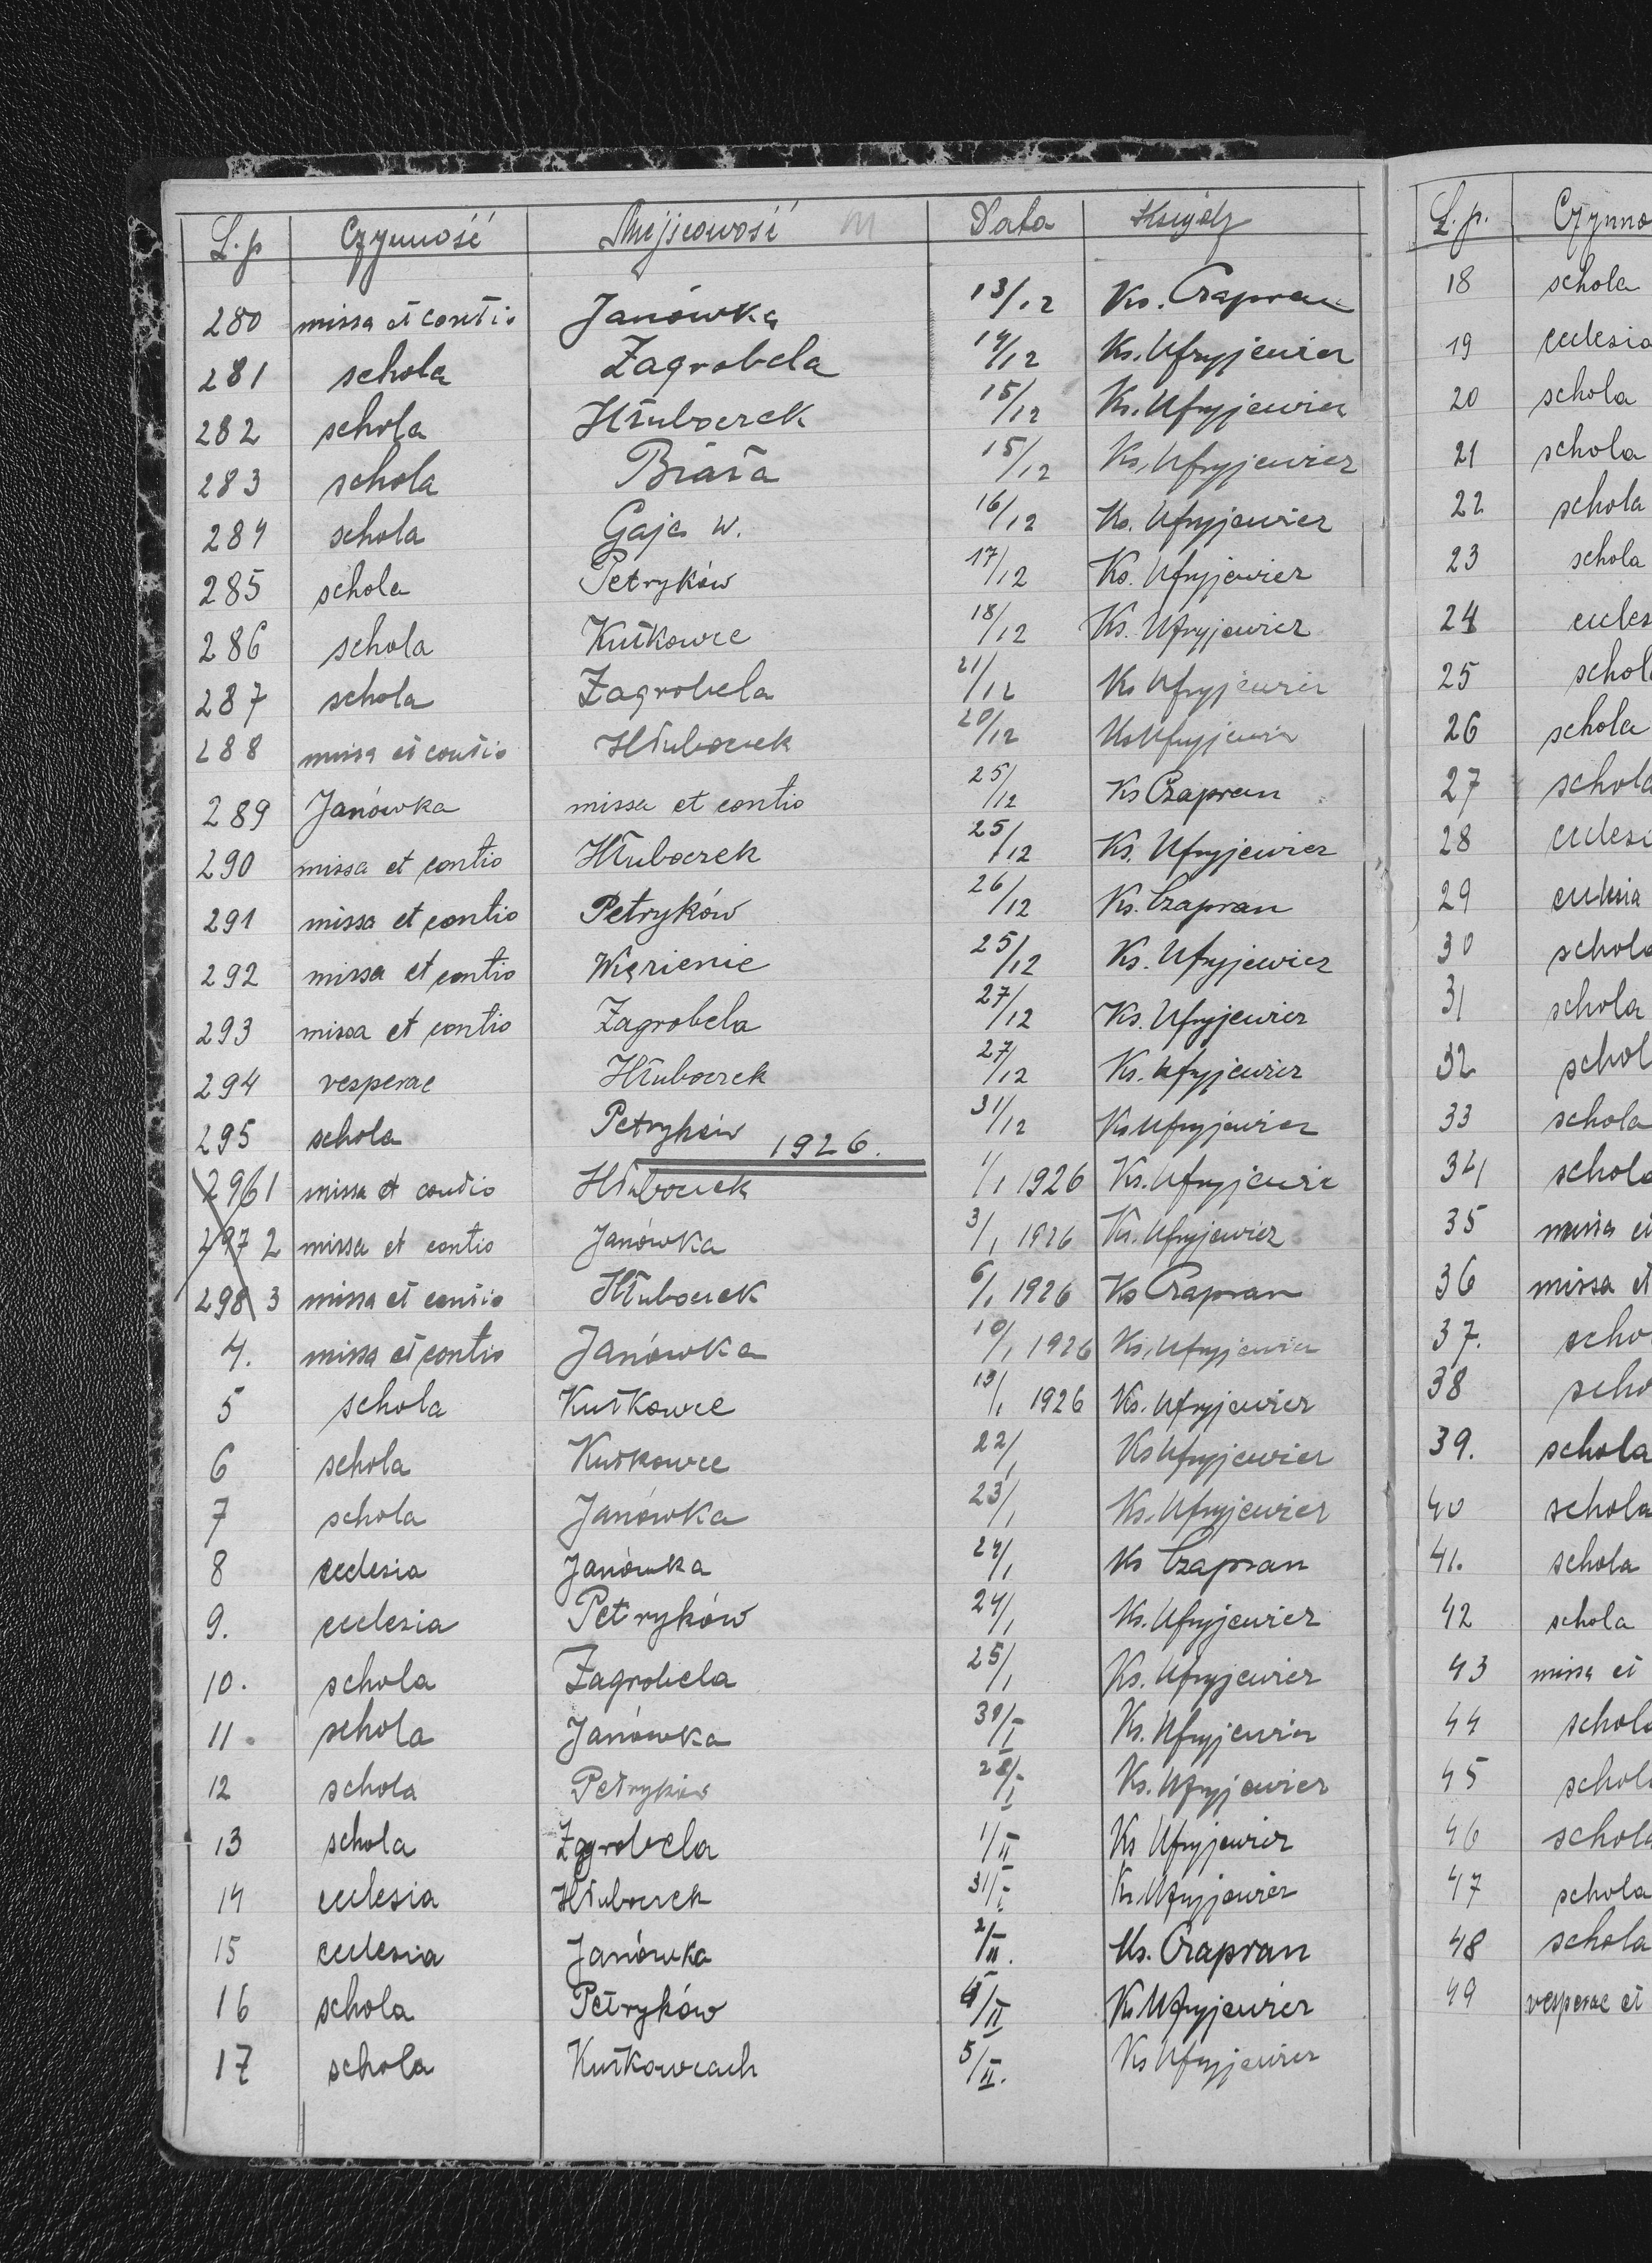 L.p Czynność Miejscowość Data Ksiądz
280 missa et contio Janówka 13/12 Ks. Czapran
281 schola Zagrobela 14/12 Ks. Ufryjewicz
282 schola Hłuboczek 15/12 Ks. Ufryjewicz
283 schola Biała 15/12 Ks. Ufryjewicz
284 schola Gaje w. 16/12 Ks. Ufryjewicz
285 schola Petryków 17/12 Ks. Ufryjewicz
286 schola Kutkowce 18/12 Ks. Ufryjewicz
287 schola Zagrobela 21/12 Ks Ufryjewicz
288 missa et contio Hłuboczek 20/12 Ks Ufryjewicz
289 Janówka missa et contio 25/12 Ks Czapran
290 missa et contio Hłuboczek 25/12 Ks. Ufryjewicz
291 missa et contio Petryków 26/12 Ks. Czapran
292 missa et contio Więzienie 25/12 Ks. Ufryjewicz
293 missa et contio Zagrobela 27/12 Ks. Ufryjewicz
294 vesperae Hłuboczek 27/12 Ks. Ufryjewicz
295 schola Petryków 31/12 Ks Ufryjewicz
1926.
296 1 missa et contio Hłuboczek 1/1 1926 Ks. Ufryjewicz
297 2 missa et contio Janówka 3/1 1926 Ks. Ufryjewicz
298 3 missa et contio Hłuboczek 6/1 1926 Ks Czapran
4. missa et contio Janówka 10/1 1926 Ks. Ufryjewicz
5 schola Kutkowce 13/1 1926 Ks. Ufryjewicz
6 schola Kutkowce 22/1 Ks Ufryjewicz
7 schola Janówka 23/1 Ks. Ufryjewicz
8 ecclesia Janówka 24/1 Ks Czapran
9. ecclesia Petryków 24/1 Ks. Ufryjewicz
10. schola Zagrobela 25/1 Ks. Ufryjewicz
11. schola Janówka 30/I Ks. Ufryjewicz
12 schola Petryków 28/I Ks. Ufryjewicz
13 schola Zagrobela 1/II Ks Ufryjewicz
14 ecclesia Hłuboczek 31/I Ks. Ufryjewicz
15 ecclesia Janówka 2/II. Ks. Czapran
16 schola Petryków 4/II Ks Ufryjewicz
17 schola Kutkowcach 5/II. Ks Ufryjewicz
L.p. Czynno
18 schola
19 ecclesia
20 schola
21 schola
22 schola
23 schola
24 eccles
25 schol
26 schola
27 schola
28 ecclesi
29 ecclesia
30 schola
31 schola
32 schol
33 schola
34 schola
35 missa et
36 missa et
37. scho
38 scho
39. schola
40 schola
41. schola
42 schola
43 missa et
44 schola
45 schola
46 schola
47 schola
48 schola
49 vesperae et